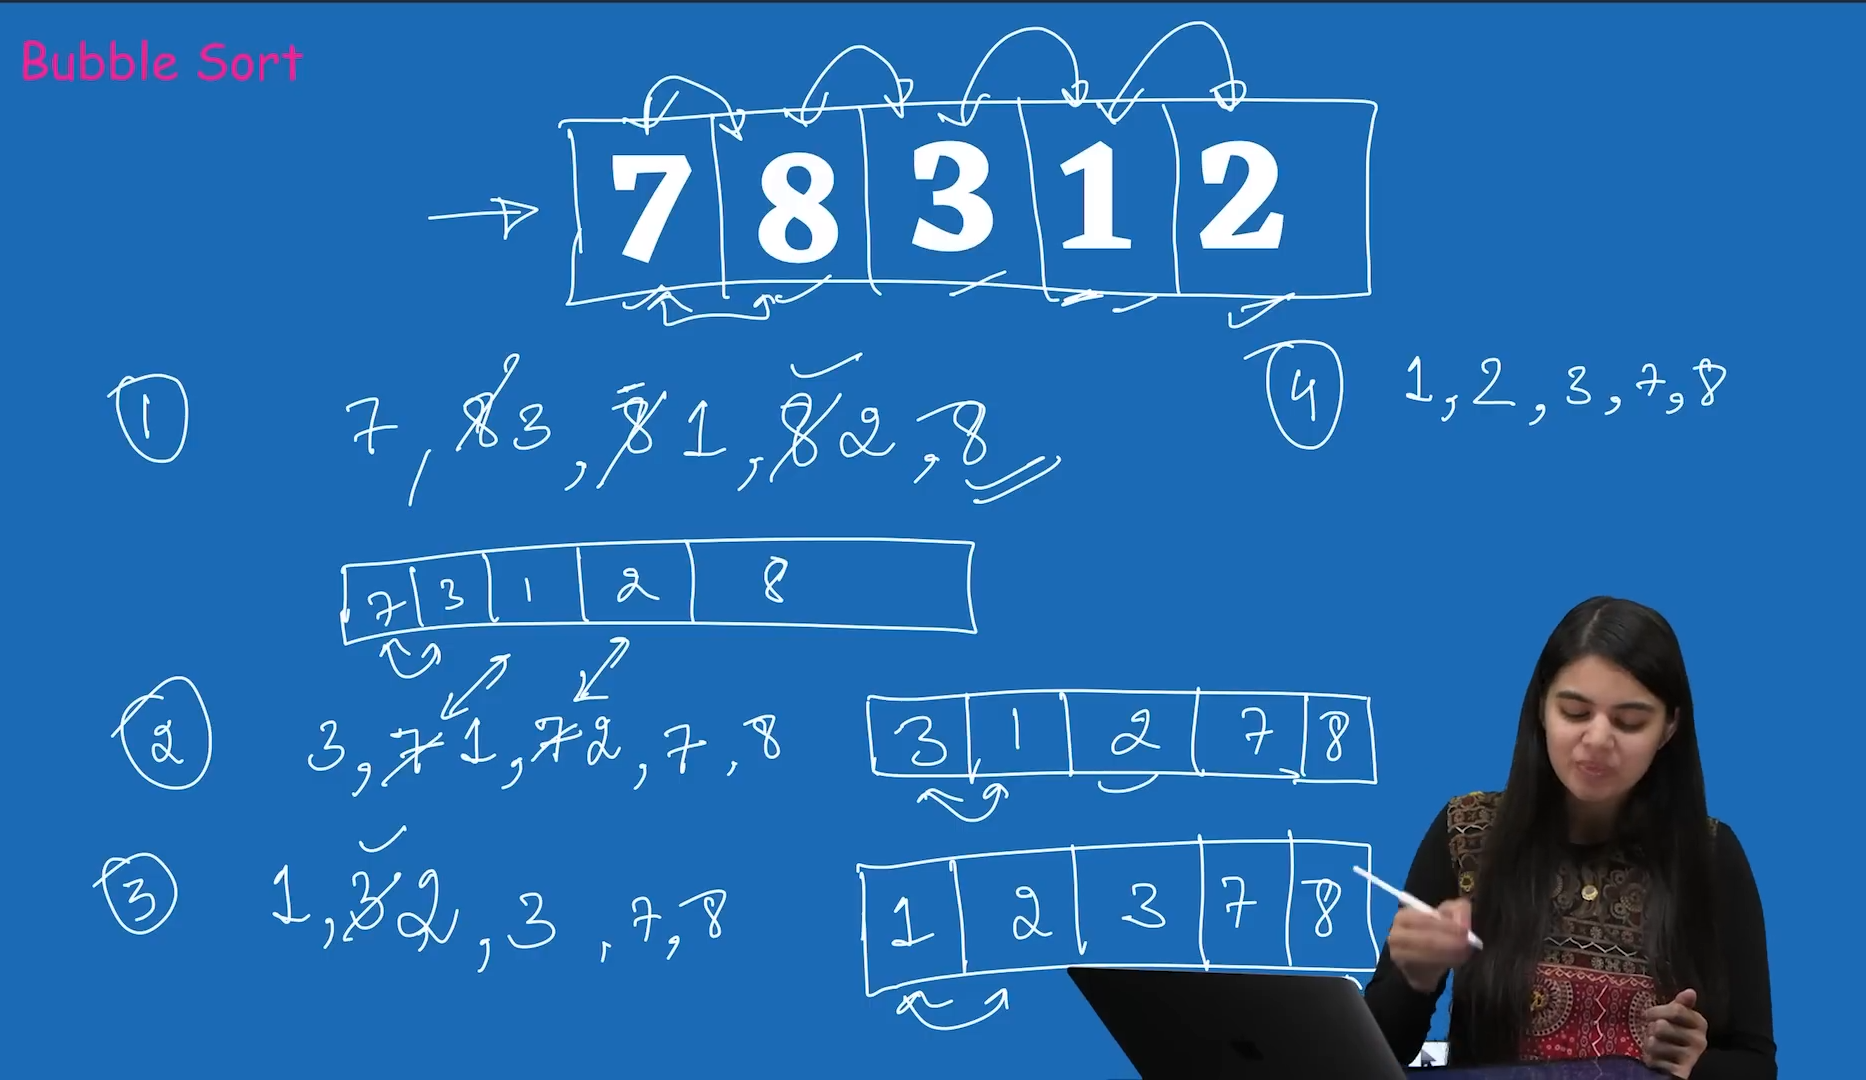 Bubble Sort
7 8 3 1 2
① 7, 8 3, 8 1, 8 2, 8
④ 1, 2, 3, 7, 8
7 3 1 2 8
② 3, 7 1, 7 2, 7, 8
3 1 2 7 8
③ 1, 3 2, 3, 7, 8
1 2 3 7 8